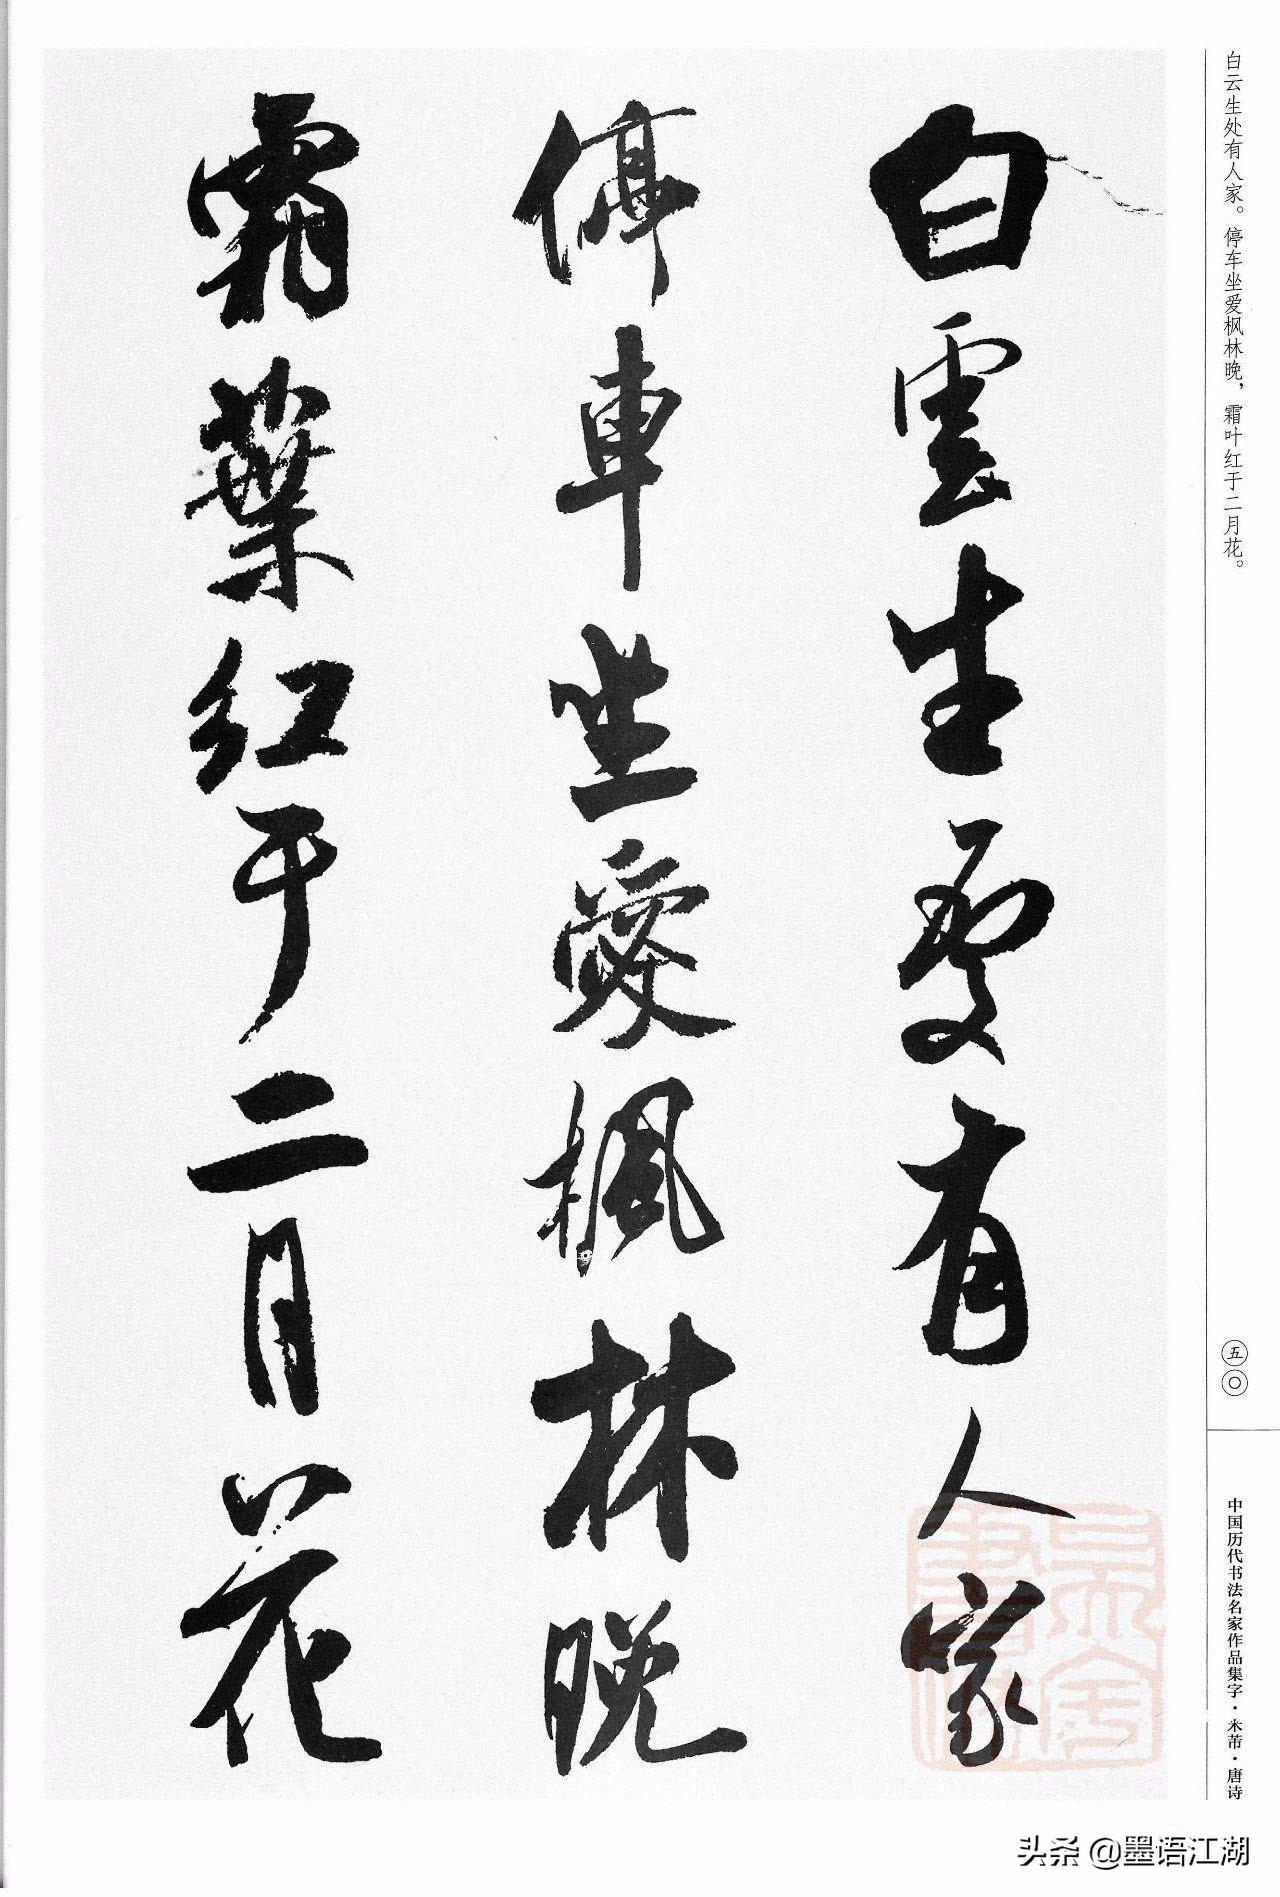 白云生处有人家。停车坐爱枫林晚，霜叶红于二月花。
白雲生處有人家
停車坐愛楓林晚
霜葉红于二月花
五〇
中国历代书法名家作品集字·米芾·唐诗
头条 @墨语江湖